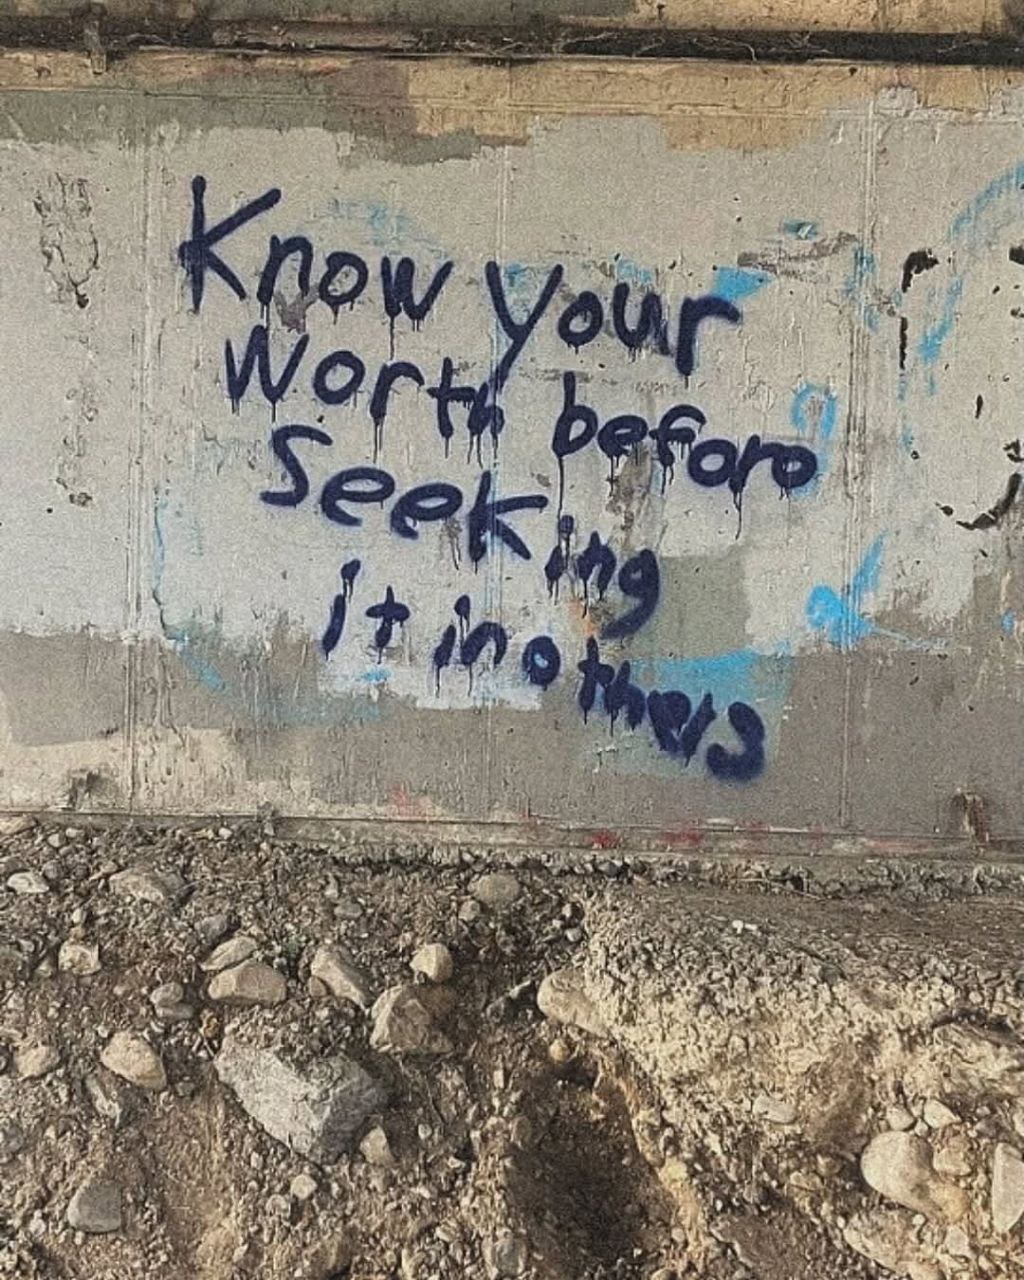 Know your
Worth before
Seeking
it in others